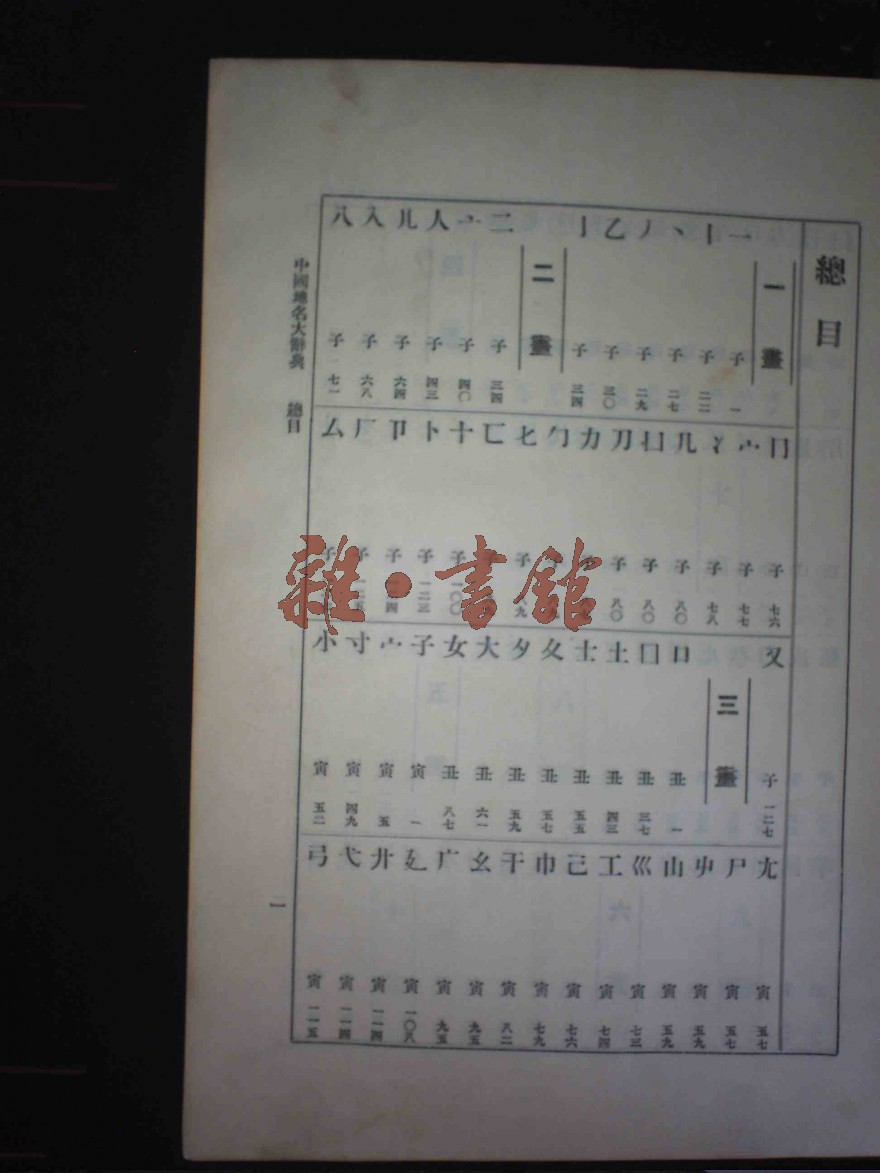 總目
一畫
一 子 一
丨 子 二二
丶 子 二七
丿 子 二九
乙 子 三〇
亅 子 三四
二畫
二 子 三四
亠 子 四〇
人 子 四三
儿 子 六四
入 子 六八
八 子 七一
冂 子 七六
冖 子 七七
冫 子 七八
几 子 八〇
凵 子 八〇
刀 子 八〇
力 子
勹 子
匕 子
匚 子
十 子 一〇〇
卜 子 一二三
卩 子
厂 子
厶 子
又 子 一二七
三畫
口 丑 一
囗 丑 三七
土 丑 四三
士 丑 五五
夊 丑 五七
夕 丑 五九
大 丑 六一
女 丑 八七
子 寅 一
宀 寅 五
寸 寅 四九
小 寅 五二
尢 寅 五七
尸 寅 五七
屮 寅 五九
山 寅 五九
巛 寅 七三
工 寅 七四
己 寅 七六
巾 寅 七九
干 寅 八二
幺 寅 九五
广 寅 九五
廴 寅 一〇八
廾 寅 一一四
弋 寅 一一四
弓 寅 一一五
中國地名大辭典 總目
一
雜·書館